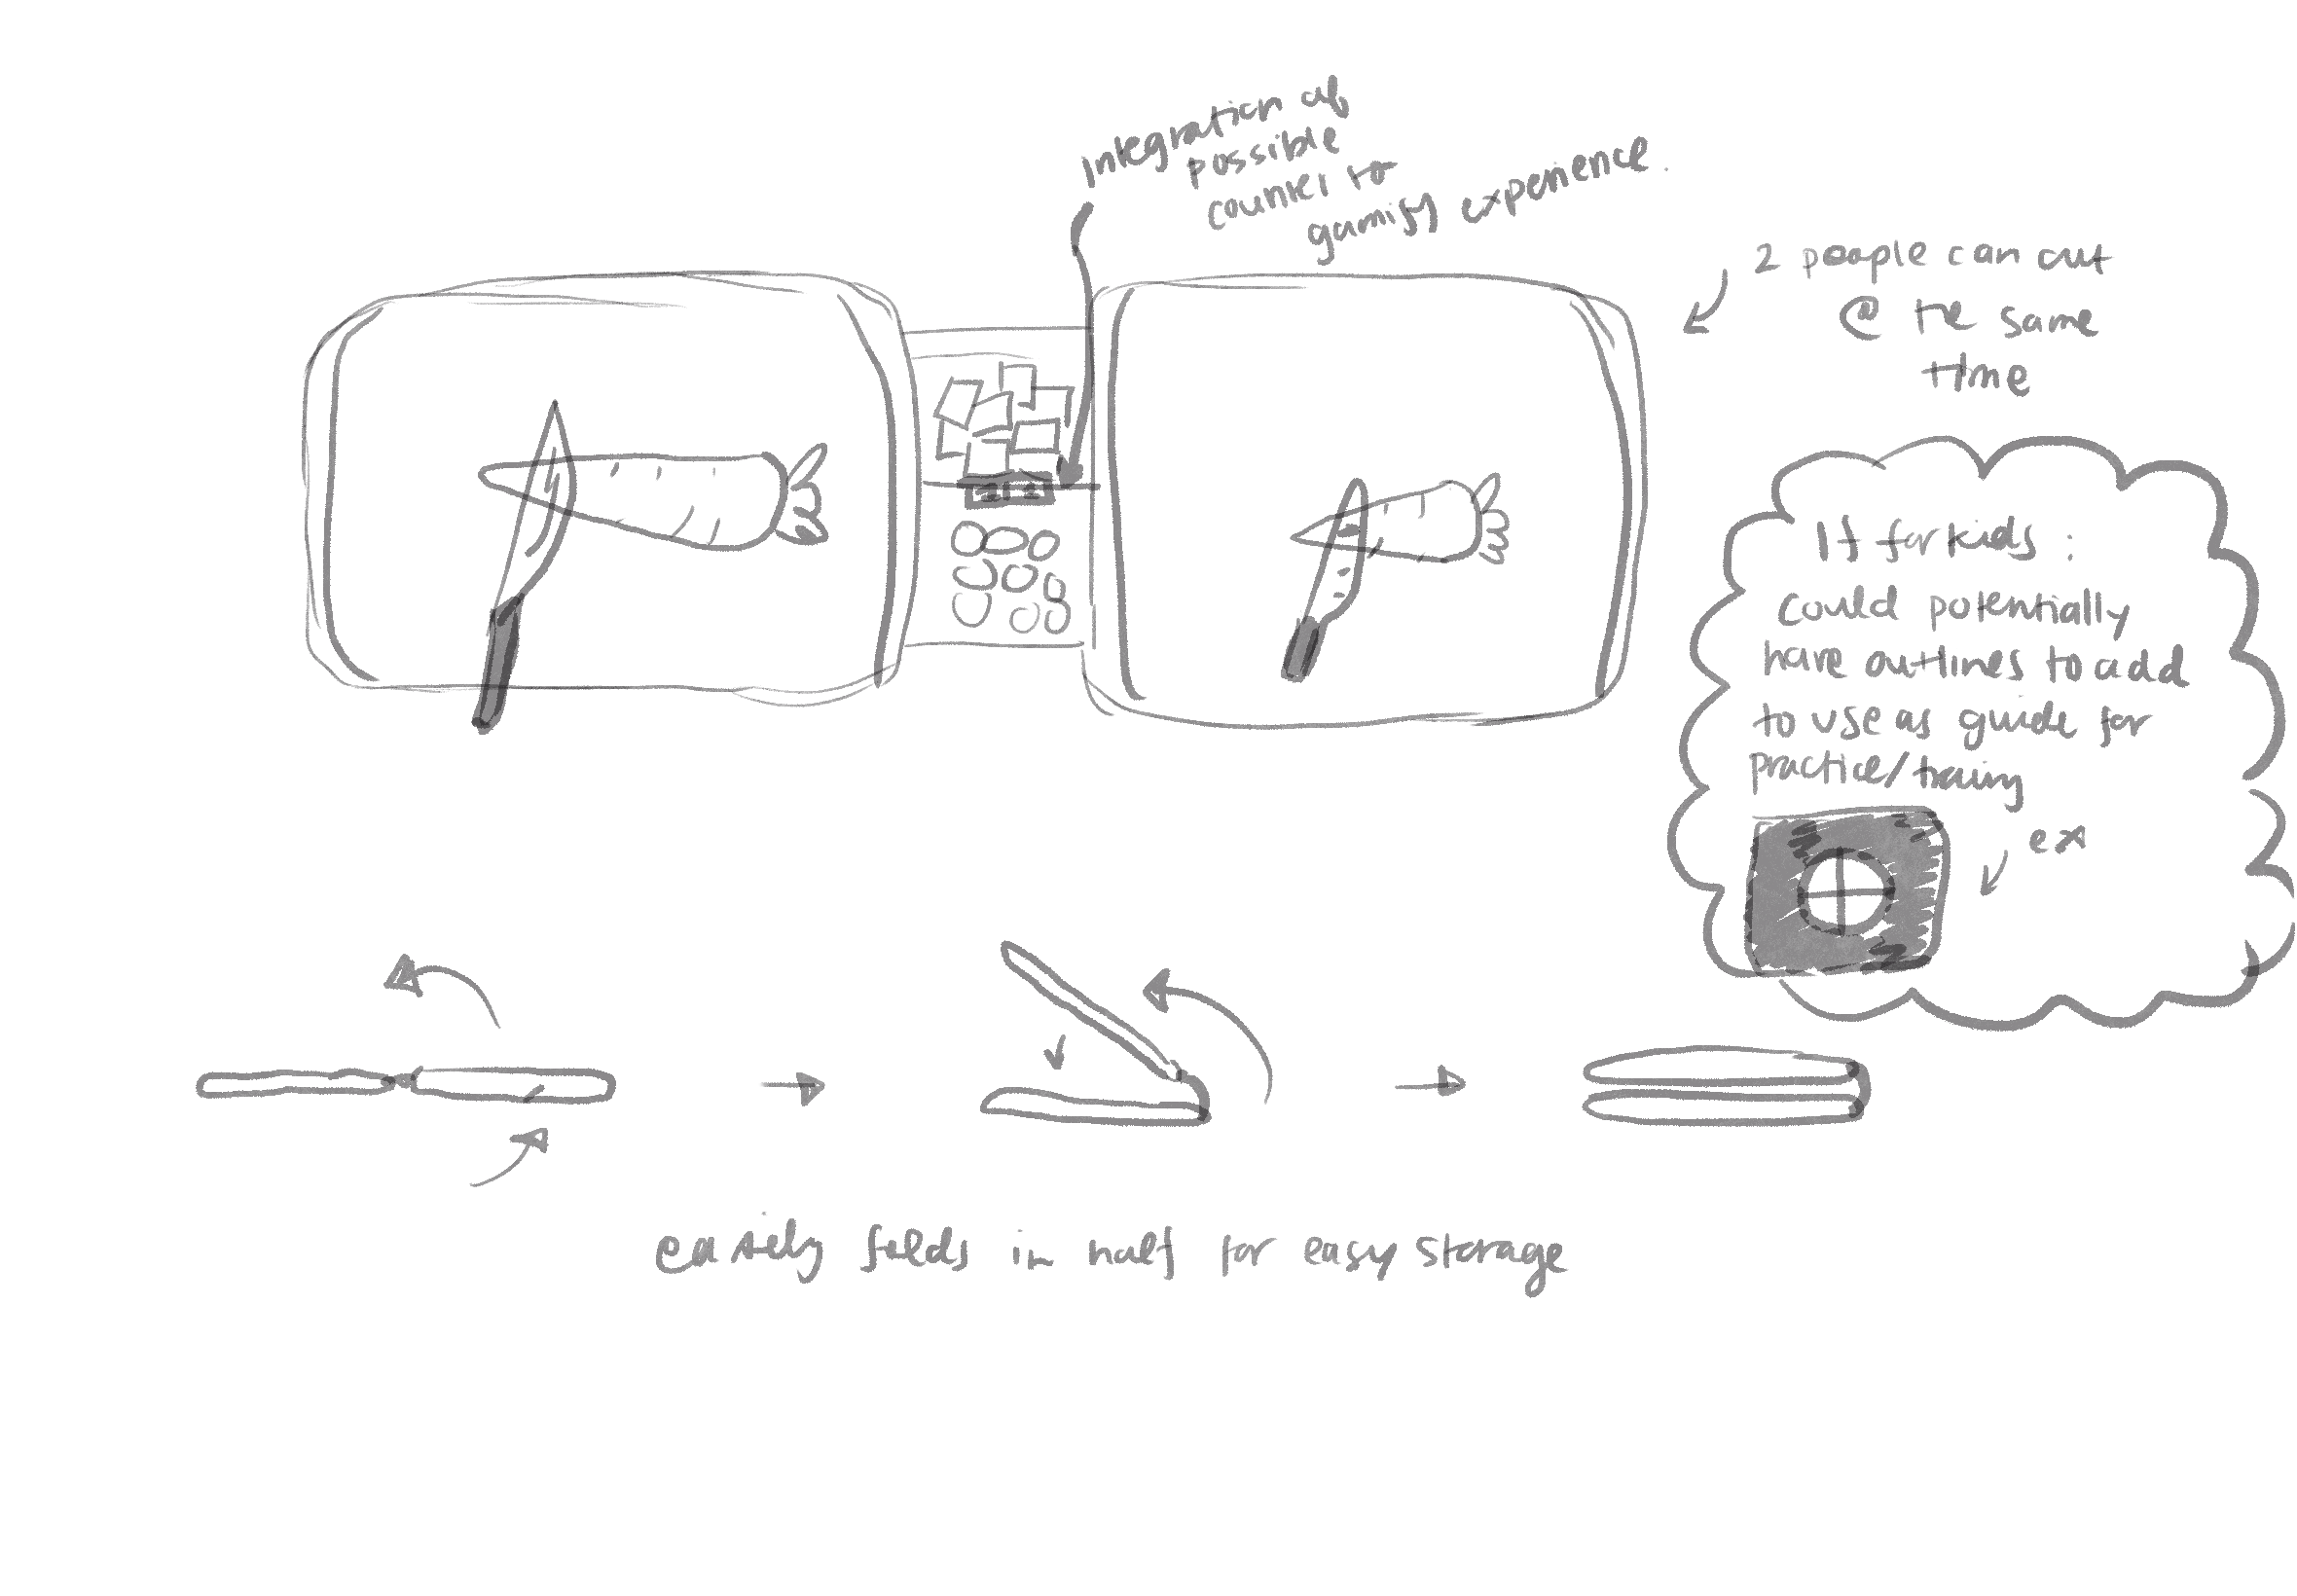 integration of
possible
counter to
gamify experience.
2 people can cut
@ the same
time
If for kids :
could potentially
have outlines to add
to use as guide for
practice/training
ex
easily folds in half for easy storage